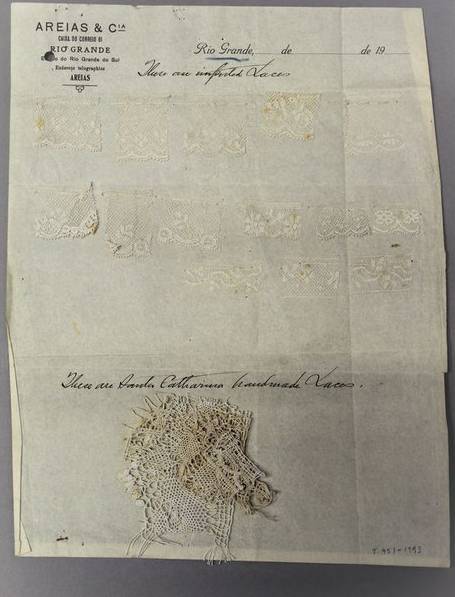 AREIAS & CIA
CAIXA DO CORREIO 61
RIO GRANDE
do Rio Grande do Sul
Endereço telegraphico
AREIAS
Rio Grande, de de 19
These are imported Laces
These are Santa Catharina handmade Laces.